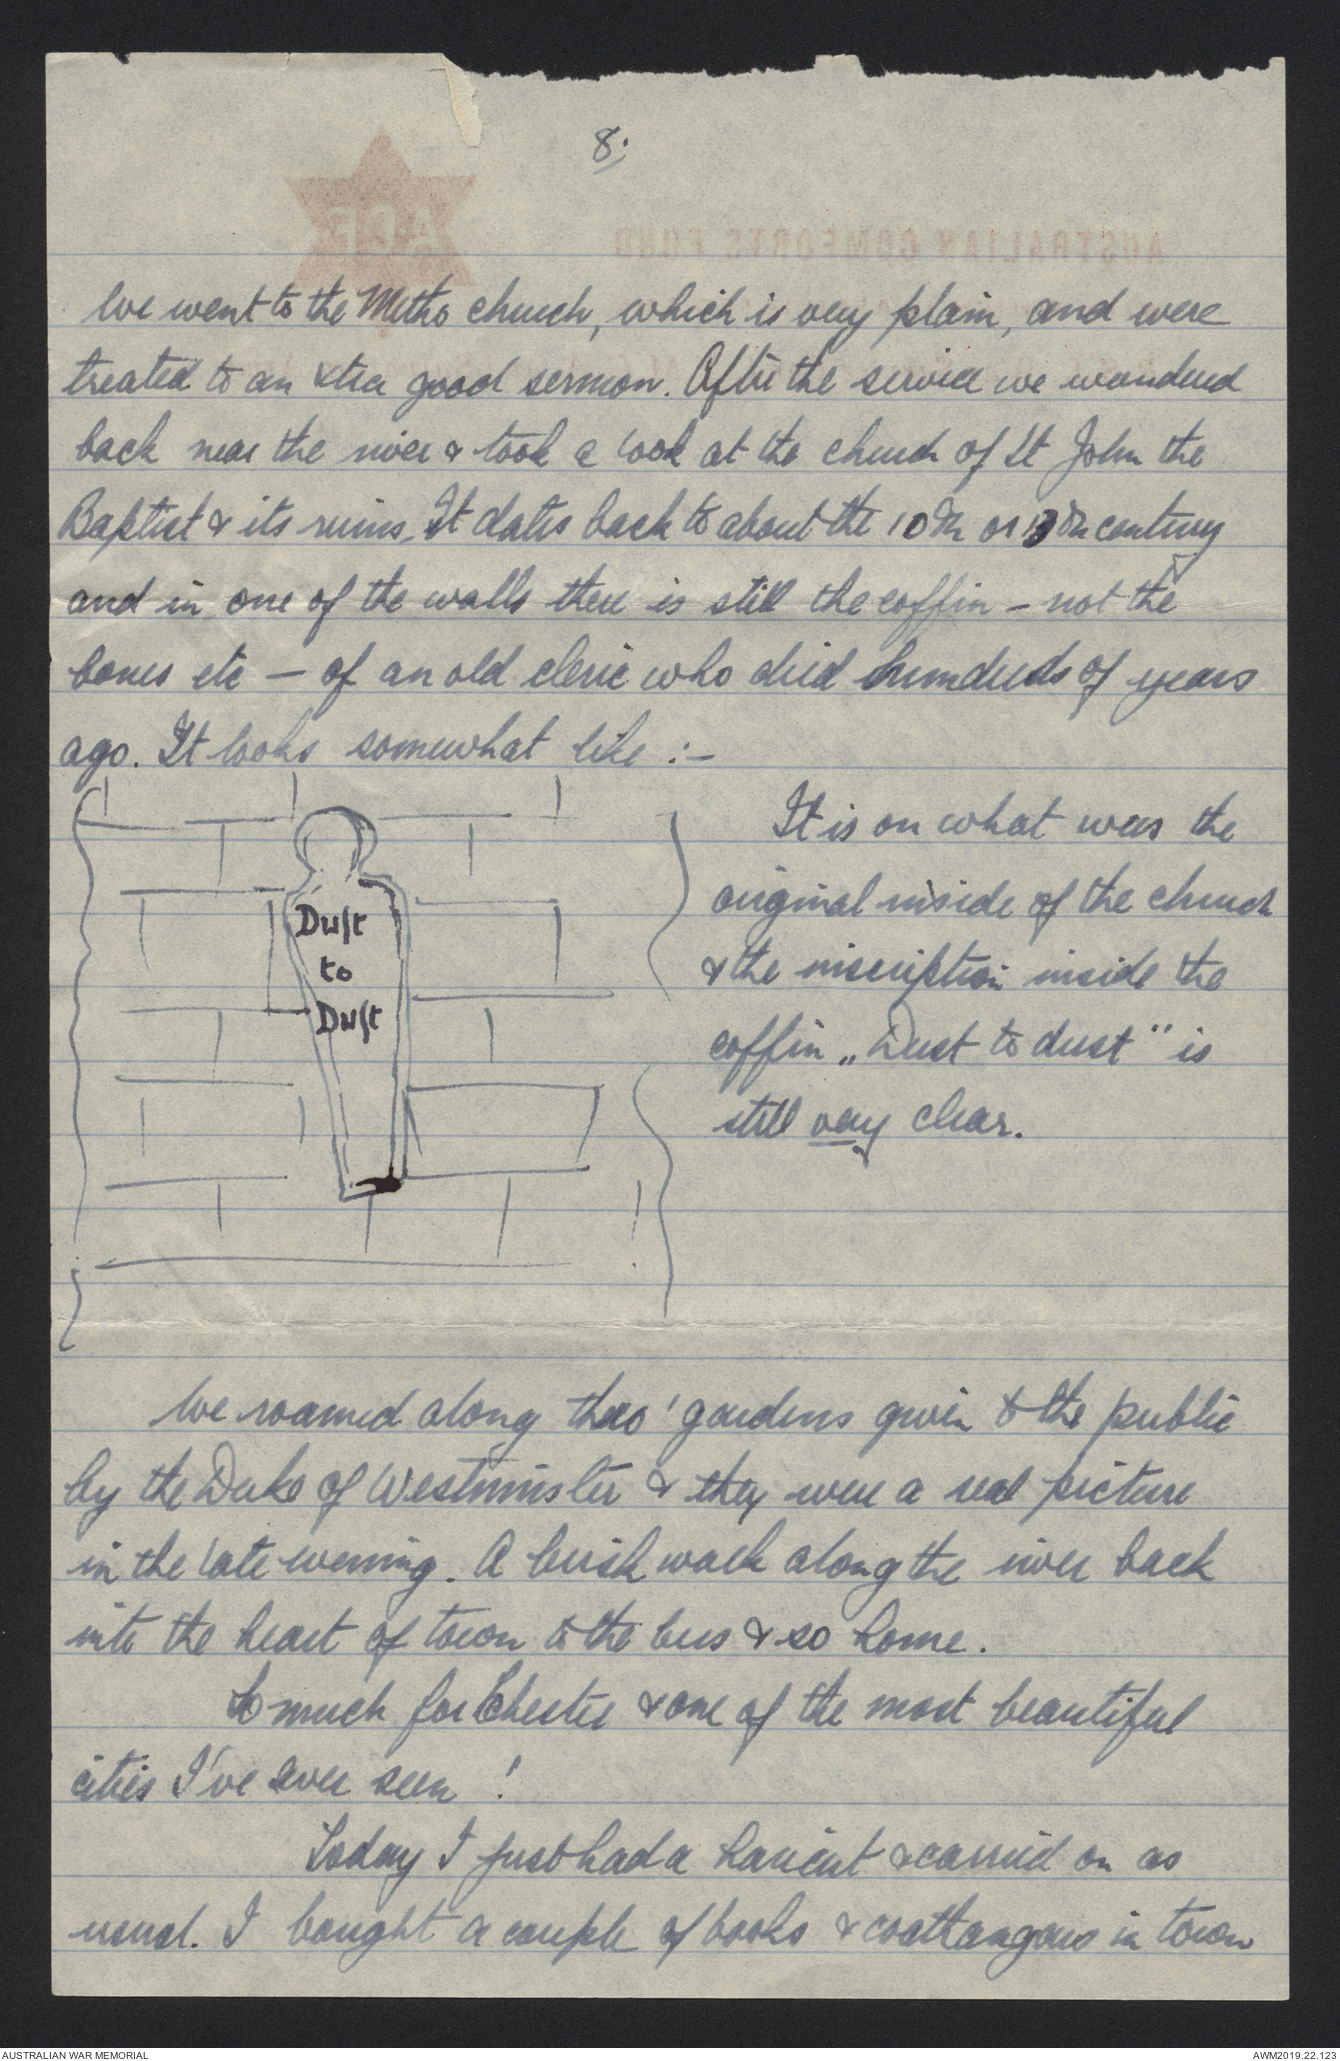 8.
ACF
AUSTRALIAN COMFORTS FUND
We went to the Metho church, which is very plain, and were
treated to an xtra good sermon. After the service we wandered
back near the river & took a look at the church of St John the
Baptist & its ruins. It dates back to about the 10th or 13th century
and in one of the walls there is still the coffin – not the
bones etc – of an old cleric who died hundreds of years
ago. It looks somewhat like :–
Dust
to
Dust
It is on what was the
original inside of the church
& the inscription inside the
coffin „Dust to dust" is
still very clear.
We roamed along thro' gardens given to the public
by the Duke of Westminster & they were a real picture
in the late evening. A brisk walk along the river back
into the heart of town to the bus & so home.
So much for Chester & one of the most beautiful
cities I've ever seen !
Today I just had a haircut & carried on as
usual. I bought a couple of books & coathangers in town
AUSTRALIAN WAR MEMORIAL
AWM2019.22.123